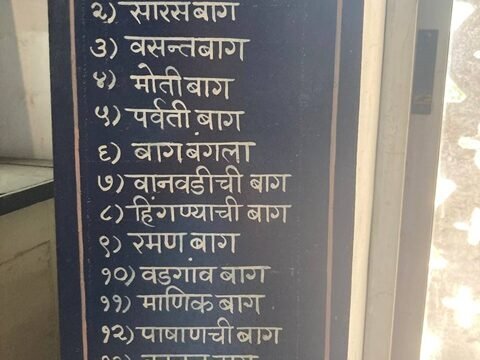 २) सारसबाग
३) वसन्तबाग
४) मोतीबाग
५) पर्वती बाग
६) बागबंगला
७) वानवडीची बाग
८) हिंगण्याची बाग
९) रमण बाग
१०) वडगांव बाग
११) माणिक बाग
१२) पाषाणची बाग